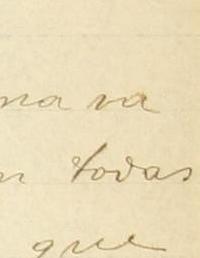 na va
n todas
que